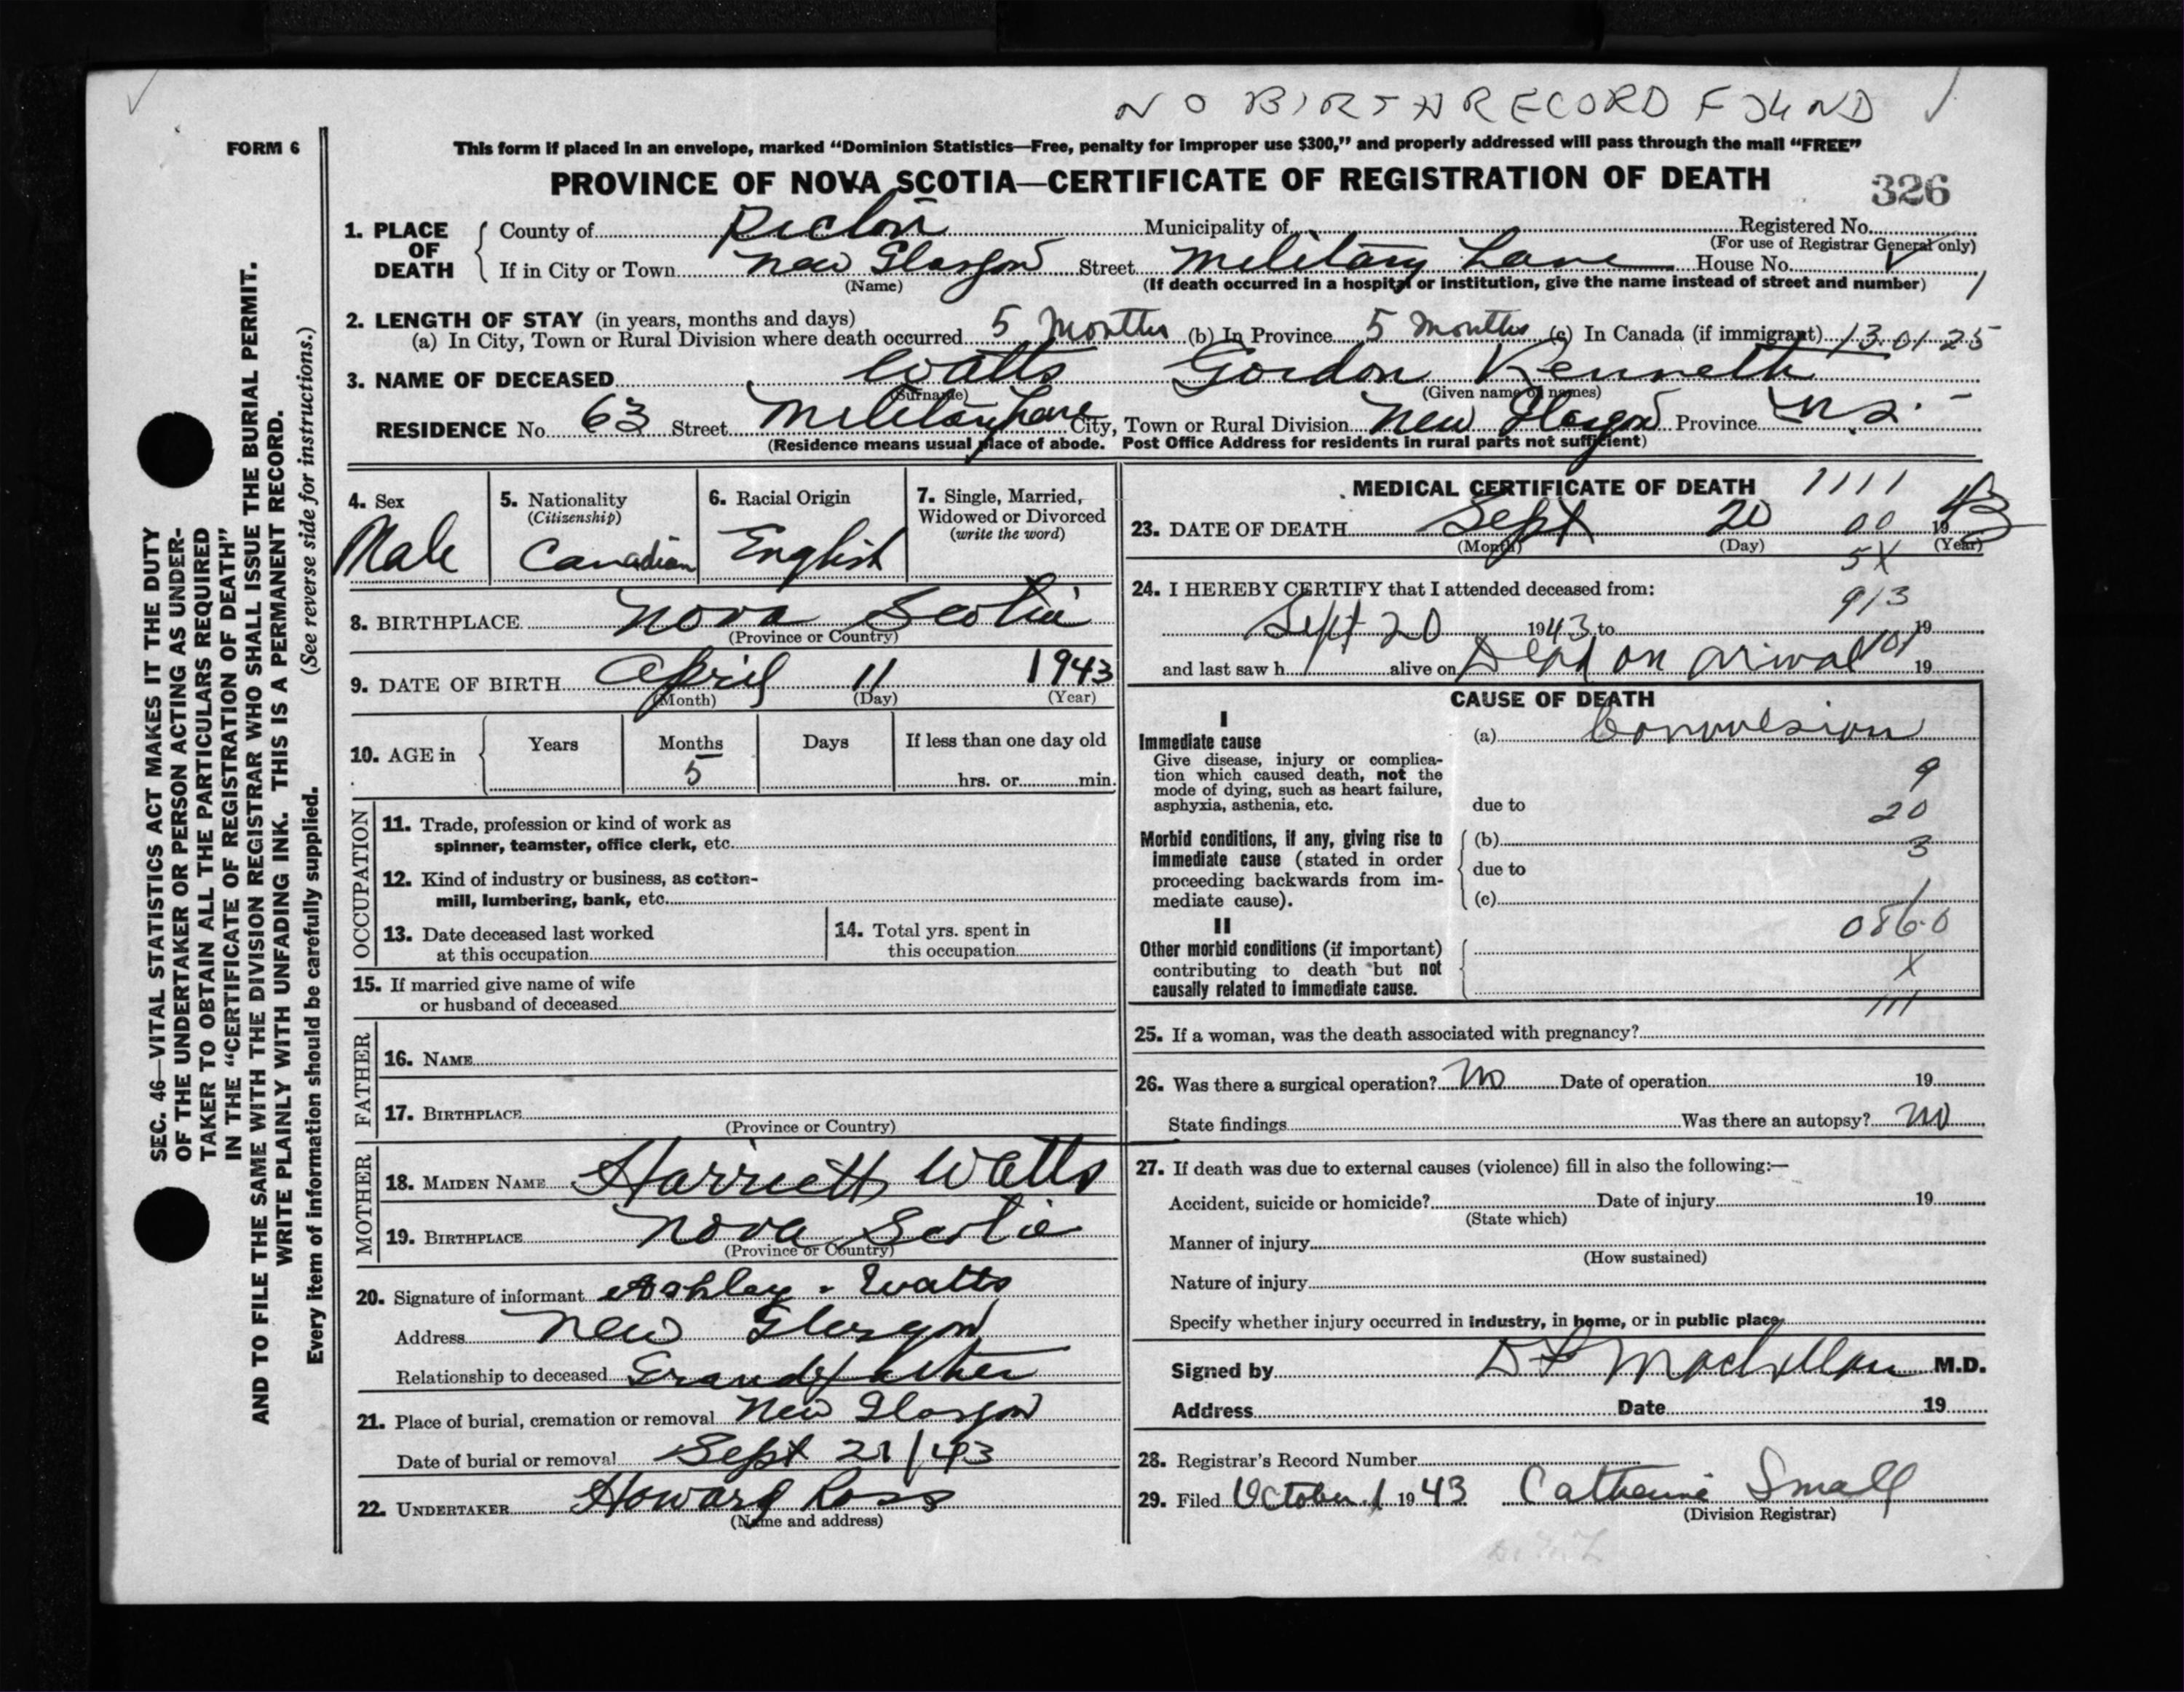 NO BIRTH RECORD FOUND
FORM 6
This form if placed in an envelope, marked "Dominion Statistics—Free, penalty for improper use $300," and properly addressed will pass through the mail "FREE"
PROVINCE OF NOVA SCOTIA—CERTIFICATE OF REGISTRATION OF DEATH
326
1. PLACE OF DEATH
County of Pictou Municipality of Registered No.
(For use of Registrar General only)
If in City or Town New Glasgow Street Military Lane House No.
(Name) (If death occurred in a hospital or institution, give the name instead of street and number)
2. LENGTH OF STAY (in years, months and days)
(a) In City, Town or Rural Division where death occurred 5 Months (b) In Province 5 months (c) In Canada (if immigrant) 13.01.25
3. NAME OF DECEASED Watts Gordon Kenneth
(Surname) (Given name or names)
RESIDENCE No. 63 Street Military Lane City, Town or Rural Division New Glasgow Province N.S.
(Residence means usual place of abode. Post Office Address for residents in rural parts not sufficient)
4. Sex
Male
5. Nationality
(Citizenship)
Canadian
6. Racial Origin
English
7. Single, Married,
Widowed or Divorced
(write the word)
8. BIRTHPLACE Nova Scotia
(Province or Country)
9. DATE OF BIRTH April 11 1943
(Month) (Day) (Year)
10. AGE in
Years Months Days If less than one day old
5 hrs. or min.
OCCUPATION
11. Trade, profession or kind of work as
spinner, teamster, office clerk, etc.
12. Kind of industry or business, as cotton-
mill, lumbering, bank, etc.
13. Date deceased last worked
at this occupation
14. Total yrs. spent in
this occupation
15. If married give name of wife
or husband of deceased
FATHER
16. NAME
17. BIRTHPLACE
(Province or Country)
MOTHER
18. MAIDEN NAME Harriett Watts
19. BIRTHPLACE Nova Scotia
(Province or Country)
20. Signature of informant Ashley Watts
Address New Glasgow
Relationship to deceased Grandfather
21. Place of burial, cremation or removal New Glasgow
Date of burial or removal Sept 21/43
22. UNDERTAKER Howard Ross
(Name and address)
MEDICAL CERTIFICATE OF DEATH 1111
23. DATE OF DEATH Sept 20 00 1943
(Month) (Day) (Year)
5X
24. I HEREBY CERTIFY that I attended deceased from:
913
Sept 20 1943 to 19
101
and last saw h alive on Dead on arival 19
CAUSE OF DEATH
I
Immediate cause
Give disease, injury or complica-
tion which caused death, not the
mode of dying, such as heart failure,
asphyxia, asthenia, etc.
(a) Convulsion
9
due to
20
Morbid conditions, if any, giving rise to
immediate cause (stated in order
proceeding backwards from im-
mediate cause).
(b)
3
due to
(c)
II
0860
Other morbid conditions (if important)
contributing to death but not
causally related to immediate cause.
X
111
25. If a woman, was the death associated with pregnancy?
26. Was there a surgical operation? No Date of operation 19
State findings Was there an autopsy? No
27. If death was due to external causes (violence) fill in also the following:—
Accident, suicide or homicide? Date of injury 19
(State which)
Manner of injury
(How sustained)
Nature of injury
Specify whether injury occurred in industry, in home, or in public place
Signed by MacLellan M.D.
Address Date 19
28. Registrar's Record Number
29. Filed October 1 1943 Catherine Small
(Division Registrar)
SEC. 46—VITAL STATISTICS ACT MAKES IT THE DUTY
OF THE UNDERTAKER OR PERSON ACTING AS UNDER-
TAKER TO OBTAIN ALL THE PARTICULARS REQUIRED
IN THE "CERTIFICATE OF REGISTRATION OF DEATH"
AND TO FILE THE SAME WITH THE DIVISION REGISTRAR WHO SHALL ISSUE THE BURIAL PERMIT.
WRITE PLAINLY WITH UNFADING INK. THIS IS A PERMANENT RECORD.
Every item of information should be carefully supplied. (See reverse side for instructions.)